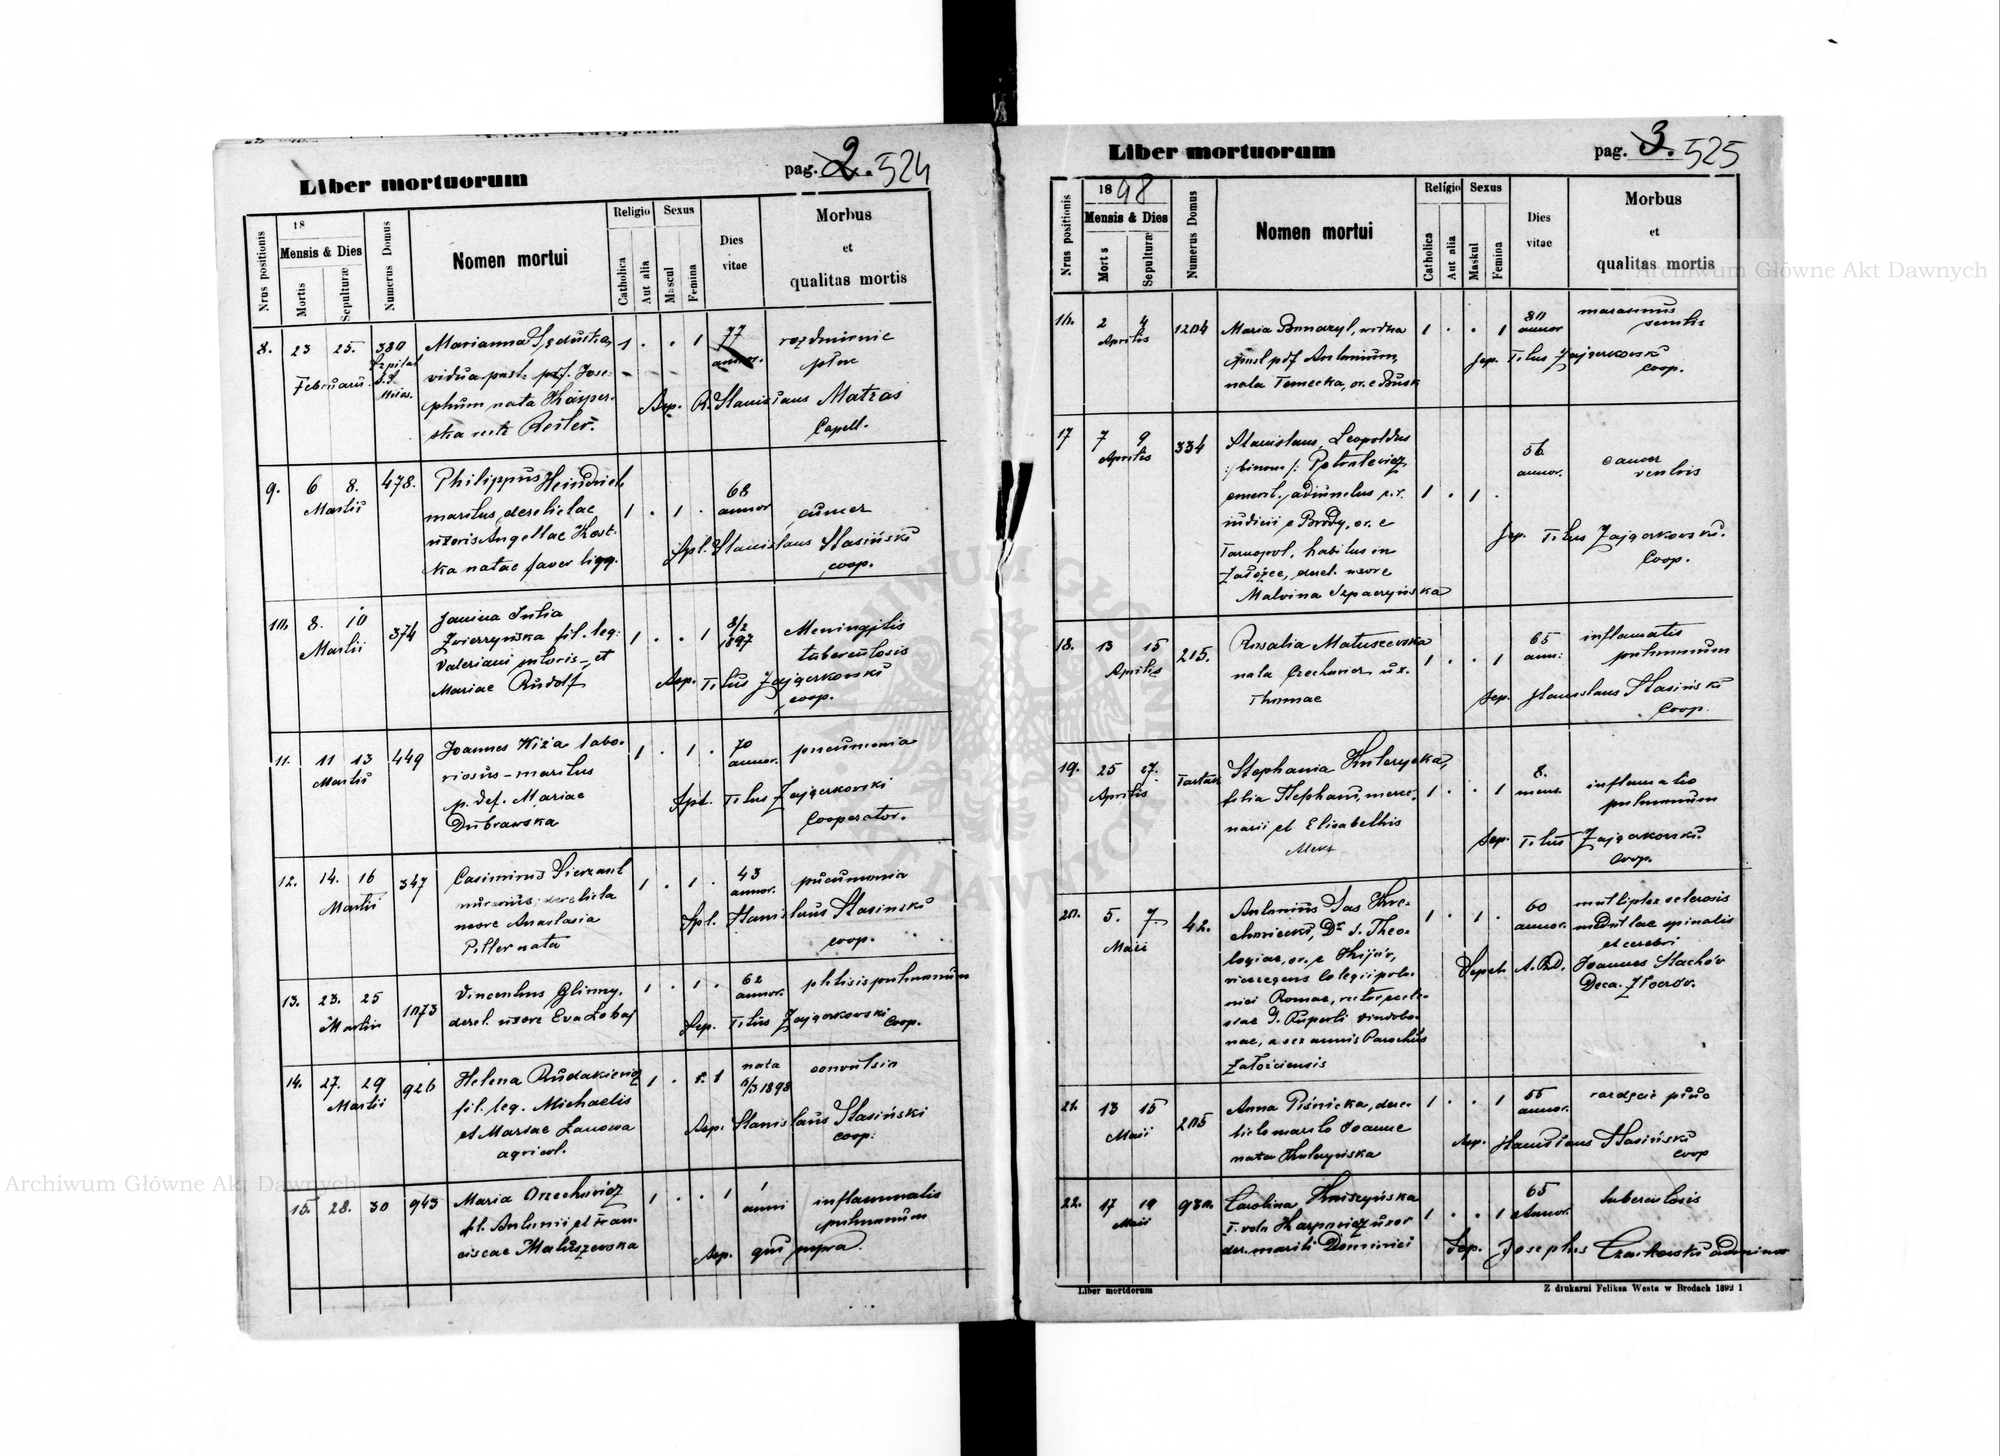 Liber mortuorum
pag. 2. 524
Nrus positionis
18
Mensis & Dies
Mortis
Sepulturæ
Numerus Domus
Nomen mortui
Religio
Catholica
Aut alia
Sexus
Mascul
Femina
Dies
vitae
Morbus
et
qualitas mortis
8. 23 25. 380 Marianna 1 . . 1 77 rozdmienie
Szpital
Februarii vidua post p.def. Jose- annor. płuc
phum nata Kasper- Sep. R. Stanislaus Matras
ska Reiter. Capell.
9. 6 8. 478. Philippus Heindrich 68
Martii maritus derelictae 1 . 1 . annor
uxoris Angellae Kost- Spl. Stanislaus Stasiński
ka natae coop.
10. 8. 10 374 Janina Julia 8/2
Martii Zwierzyńska fil. leg. 1 . . 1 1897 Meningitis
Valeriani et tuberculosis
Mariae Rudolf Sep. Titus Zajączkowski
coop.
11. 11 13 449 Joannes Kiża labo- 1 . 1 . 70 pneumonia
Martii riosus - maritus annor.
p. def. Mariae Spl. Titus Zajączkowski
Dubrawska Cooperator.
12. 14. 16 347 Casimirus 1 . 1 . 43 pneumonia
Martii murarius, derelicta annor.
uxore Anastasia Spl. Stanislaus Stasinski
nata coop.
13. 23. 25 1073 Vincentius Glinny, 1 . 1 . 62 phtisis pulmonum
Martii derel. uxore Eva annor.
Sep. Titus Zajączkowski coop.
14. 27. 29 926 Helena Rudakiewicz 1 . 1 nata convulsio
Martii fil. leg. Michaelis 1898
et Mariae Sep. Stanislaus Stasiński
agricol. coop.
15. 28. 30 943 Maria Orzechowicz 1 . . 1 1 inflammatis
fil. Antonii et Fran- anni pulmonum
ciscae Matuszewska Sep. qui supra.
Liber mortuorum
pag. 3. 525
Nrus positionis
1898
Mensis & Dies
Mort s
Sepulturæ
Numerus Domus
Nomen mortui
Religio
Catholica
Aut alia
Sexus
Maskul
Femina
Dies
vitae
Morbus
et
qualitas mortis
16. 2 4 1204 Maria vidua 1 . . 1 80 marasmus
Aprilis post pdf Antonium, annor senilis
nata or. e Busk Sep. Titus Zajączkowski
coop.
17 7 9 334 Stanislaus, Leopoldus 56
Aprilis /: binom :/ annor. cancer
emerit. adiunctus c. r. 1 . 1 . ventris
iudicii e Brody, or. e Sep. Titus Zajączkowski.
Tarnopol, habitus in Coop.
Załoźce, derel. uxore
Malvina
18. 13 15 215. Rosalia Matuszewska 65 inflamatis
Aprilis nata ux. 1 . . 1 ann: pulmonum
Thomae Sep. Stanislaus Stasiński
Coop.
19. 25 27. Tartak Stephania 8.
Aprilis filia Stephani, merce- 1 . . 1 mens. inflamatio
narii et Elisabethis pulmonum
Sep. Titus Zajączkowski
Coop.
20. 5. 7. 42. Antonius Sas 1 . 1 . 60 multiplex sclerosis
Maii Dr S. Theo- annor. medullae spinalis
logiae, or. e Kijów, et cerebri
vieceregens collegii polo- Sepel. A.R.D. Joannes Stachów
nici Romae, rector eccle- Deca. Złoczów.
siae S. Ruperti Vindobo-
nae, a sex annis Parochus
Załoźciensis
21. 13 15 205 Anna Piśnicka, dere- 1 . . 1 55
Maii licto marito Joanne annor.
nata Sep. Stanislaus Stasiński
coop
22. 17 19 930. Carolina 65 tuberculosis
Maii uxor 1 . . 1 Annor.
der. mariti Dominici Sep. Josephus
Liber mortuorum
Z drukarni Feliksa Westa w Brodach 1892 1
Archiwum Główne Akt Dawnych
Archiwum Główne Akt Dawnych
ARCHIWUM GŁÓWNE AKT DAWNYCH